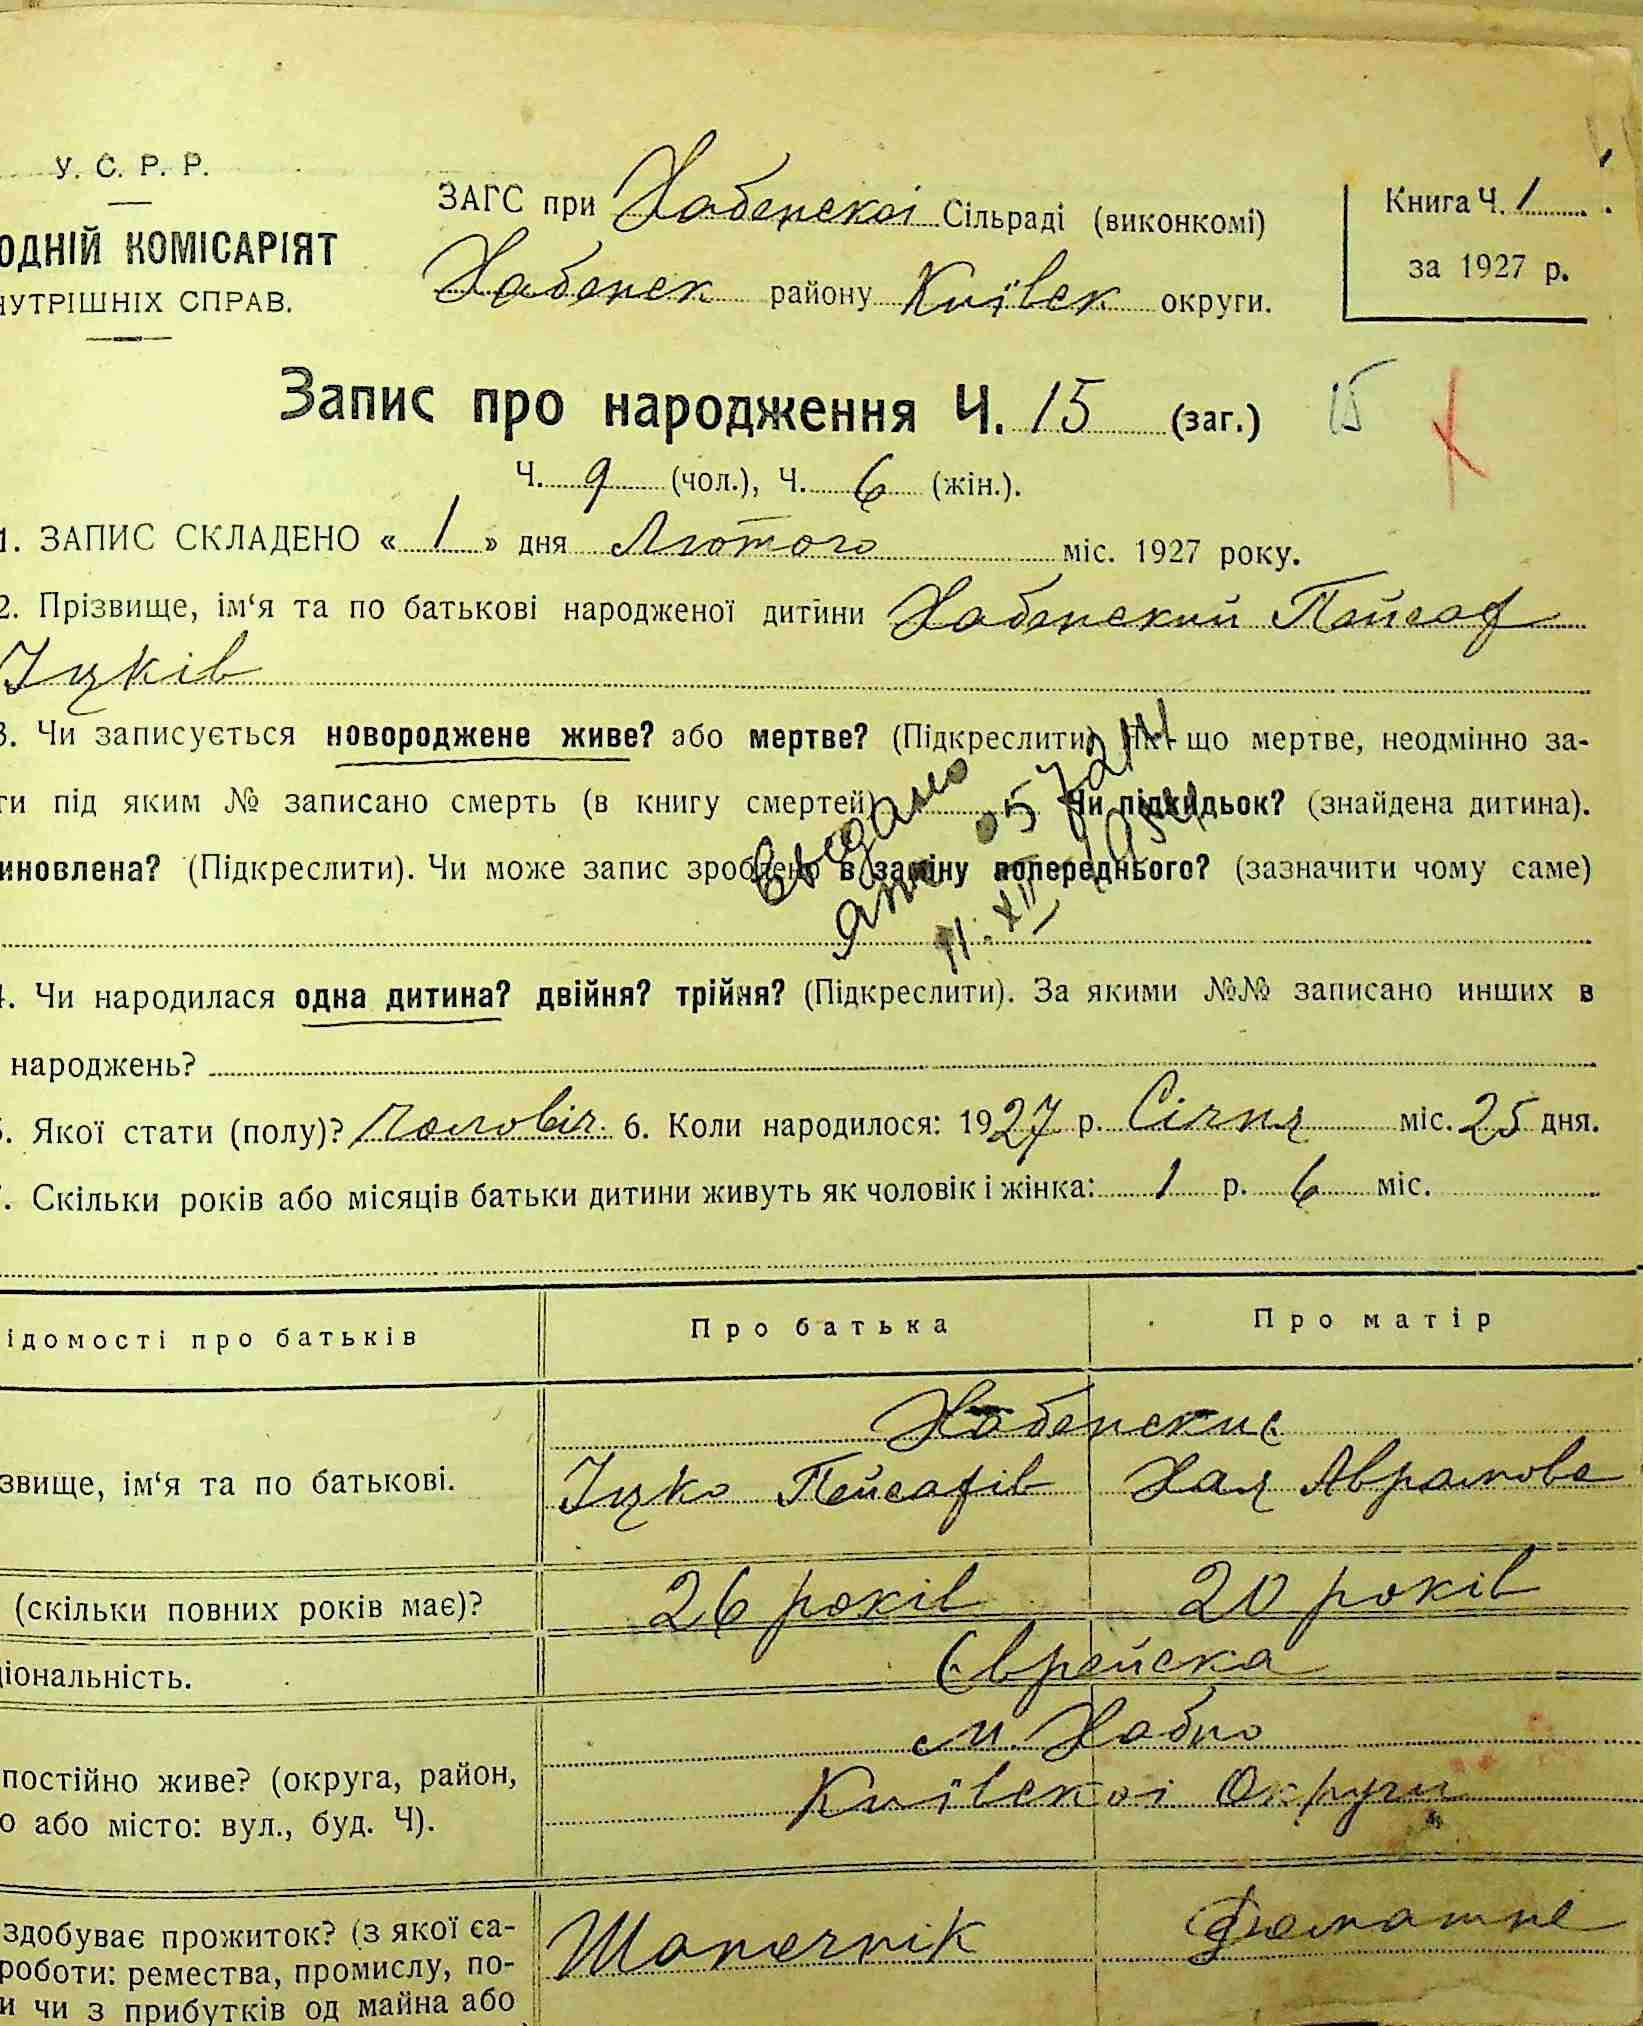 У. С. Р. Р.
ОДНІЙ КОМІСАРІЯТ
НУТРІШНІХ СПРАВ.
ЗАГС при Хабенскоі Сільраді (виконкомі)
Хабенск району Київск округи.
Книга Ч. 1
за 1927 р.
Запис про народження Ч. 15 (заг.) 15
Ч. 9 (чол.), Ч. 6 (жін.).
1. ЗАПИС СКЛАДЕНО « 1 » дня Лютого міс. 1927 року.
2. Прізвище, ім‘я та по батькові народженої дитини Хабенский Пейсах
Іцків
3. Чи записується новороджене живе? або мертве? (Підкреслити) що мертве, неодмінно за-
ти під яким № записано смерть (в книгу смертей) Чи підкидьок? (знайдена дитина).
иновлена? (Підкреслити). Чи може запис зроблено в заміну попереднього? (зазначити чому саме)
4. Чи народилася одна дитина? двійня? трійня? (Підкреслити). За якими №№ записано инших в
народжень?
5. Якої стати (полу)? Чоловіч. 6. Коли народилося: 1927 р. Січня міс. 25 дня.
7. Скільки років або місяців батьки дитини живуть як чоловік і жінка: 1 р. 6 міс.
ідомості про батьків Про батька Про матір
Хабенские
звище, ім‘я та по батькові. Іцко Пейсахів Хая Аврамова
(скільки повних років має)? 26 років 20 років
ціональність. Єврейска
м. Хабно
постійно живе? (округа, район, Київскоі Округи
о або місто: вул., буд. Ч).
здобуває прожиток? (з якої га- Шапочнік
роботи: ремества, промислу, по-
и чи з прибутків од майна або